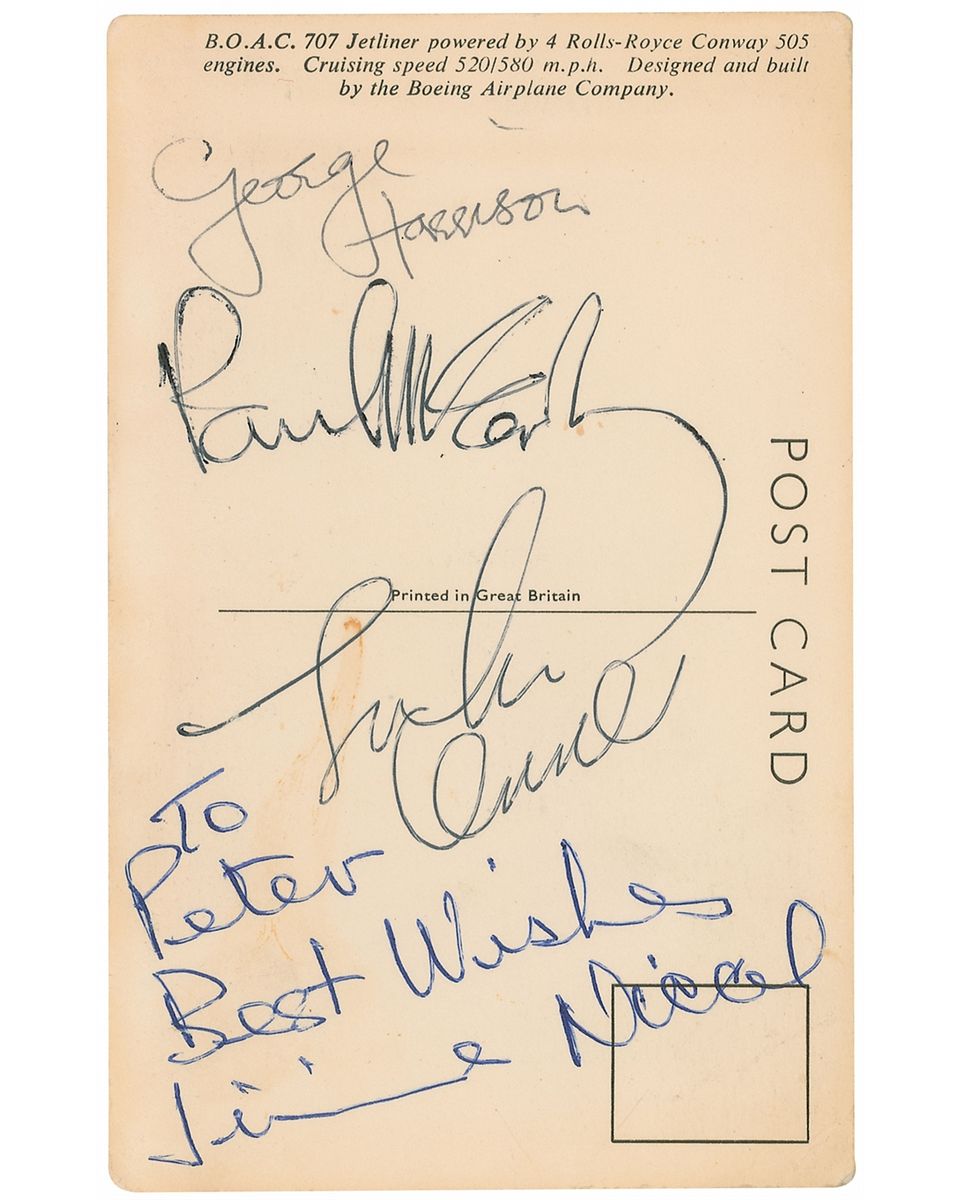 B.O.A.C. 707 Jetliner powered by 4 Rolls-Royce Conway 505
engines. Cruising speed 520/580 m.p.h. Designed and built
by the Boeing Airplane Company.
George
Harrison
Paul McCartney
Printed in Great Britain
POST CARD
John
Lennon
To
Peter
Best Wishes
Jimmie Nicol